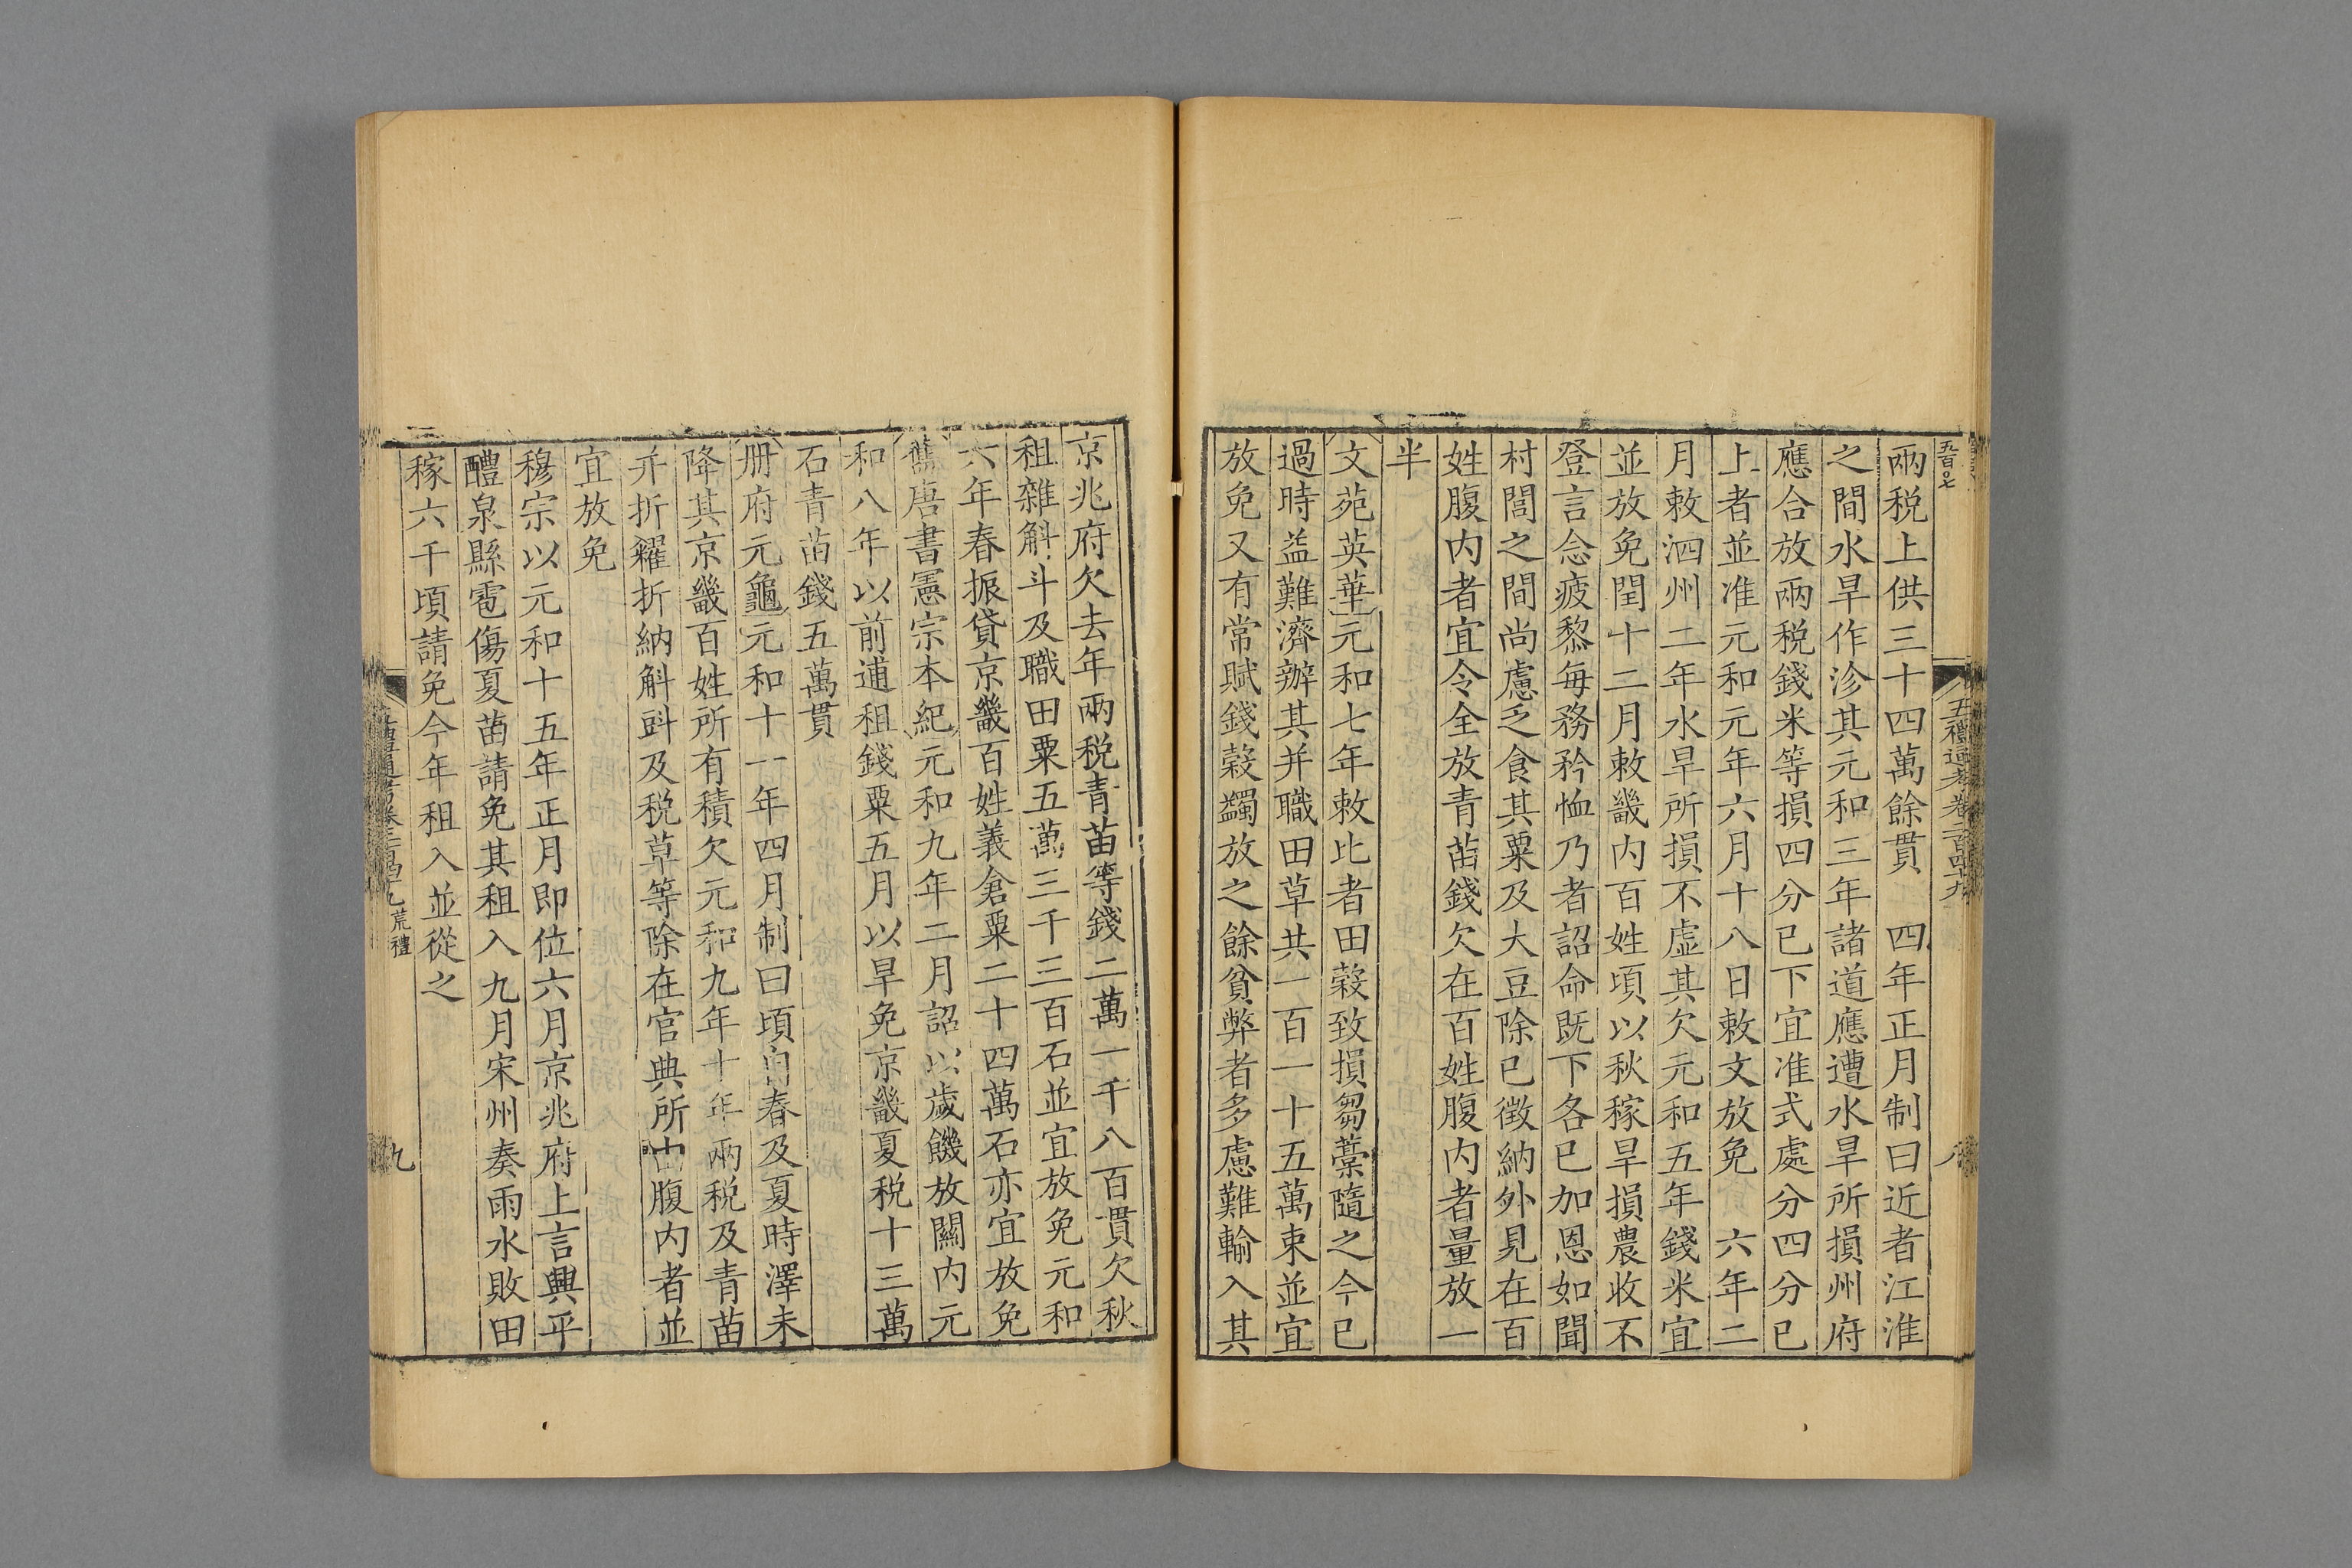 五百〇七
五禮通考卷二百四十九
八
兩稅上供三十四萬餘貫　四年正月制曰近者江淮
之間水旱作沴其元和三年諸道應遭水旱所損州府
應合放兩稅錢米等損四分已下宜准式處分四分已
上者並准元和元年六月十八日敕文放免　六年二
月敕泗州二年水旱所損不虛其欠元和五年錢米宜
並放免閏十二月敕畿內百姓頃以秋稼旱損農收不
登言念疲黎每務矜恤乃者詔命既下各已加恩如聞
村閭之間尚慮乏食其粟及大豆除已徵納外見在百
姓腹內者宜令全放青苗錢欠在百姓腹內者量放一
半
文苑英華元和七年敕比者田穀致損芻藁隨之今已
過時益難濟辦其并職田草共一百一十五萬束並宜
放免又有常賦錢穀蠲放之餘貧弊者多慮難輸入其
京兆府欠去年兩稅青苗等錢二萬一千八百貫欠秋
租雜斛斗及職田粟五萬三千三百石並宜放免元和
六年春振貸京畿百姓義倉粟二十四萬石亦宜放免
舊唐書憲宗本紀元和九年二月詔以歲饑放關內元
和八年以前逋租錢粟五月以旱免京畿夏稅十三萬
石青苗錢五萬貫
册府元龜元和十一年四月制曰頃自春及夏時澤未
降其京畿百姓所有積欠元和九年十年兩稅及青苗
并折糴折納斛㪷及稅草等除在官典所由腹內者並
宜放免
穆宗以元和十五年正月即位六月京兆府上言興平
醴泉縣雹傷夏苗請免其租入九月宋州奏雨水敗田
稼六千頃請免今年租入並從之
五禮通考卷二百四十九 荒禮
九